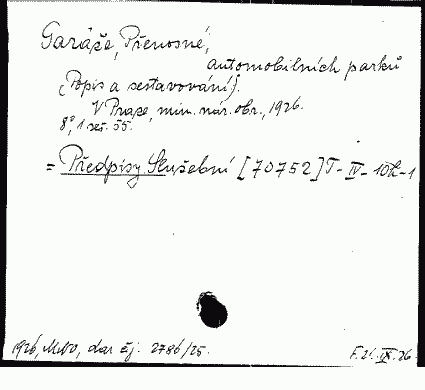 Garáže, Přenosné,
automobilních parků
(Popis a sestavování).
V Praze, min. nár. obr., 1926.
8°, 1 seš. 55.
= Předpisy Služební [70752] T-IV-10h-1
1926, MNO, dar čj. 2786/25.
F. 21. IX. 26